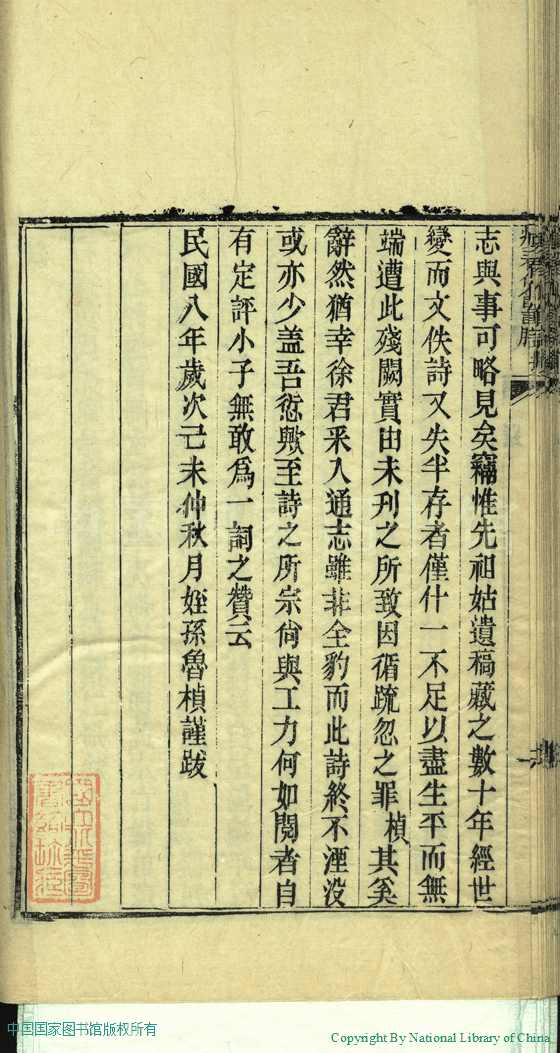 志與事可略見矣竊惟先祖姑遺稿藏之數十年經世
變而文佚詩又失半存者僅什一不足以盡生平而無
端遭此殘闕實由未刋之所致因循疏忽之罪楨其奚
辭然猶幸徐君采入通志雖非全豹而此詩終不湮没
或亦少盖吾愆歟至詩之所宗尙與工力何如閱者自
有定評小子無敢爲一詞之贊云
民國八年歲次己未仲秋月姪孫魯楨謹跋
中国国家图书馆版权所有
Copyright By National Library of China